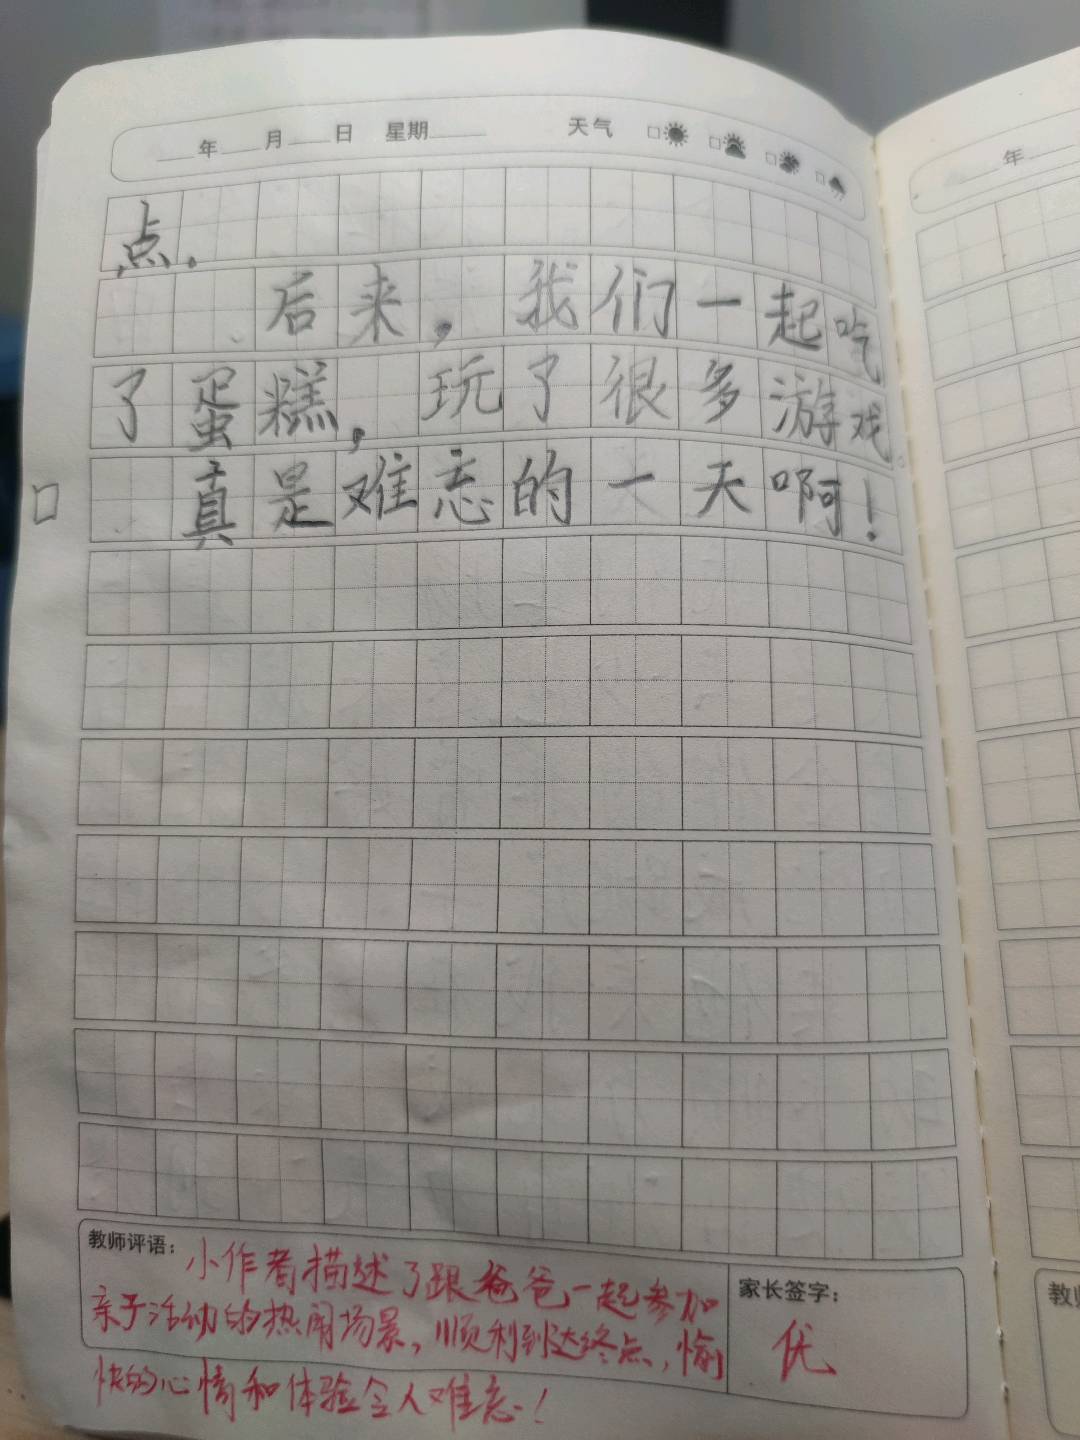 年 月 日 星期 天气
年
点。
后来，我们一起吃
了蛋糕，玩了很多游戏。
真是难忘的一天啊！
教师评语：小作者描述了跟爸爸一起参加
亲子活动的热闹场景，顺利到达终点，愉
快的心情和体验令人难忘！
家长签字：
优
教师